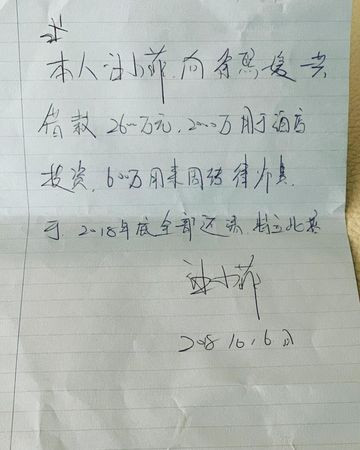 本人汪小菲,向 共
借款2600万元,2000万用于酒店
投资,600万用来周转律师费.
于2018年底全部还清.特立此据
汪小菲
2018 10.6日